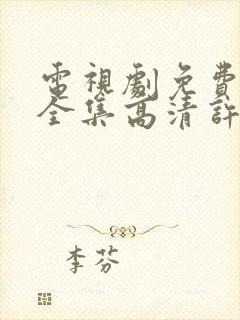 電視劇免費
全集高清許
李芬